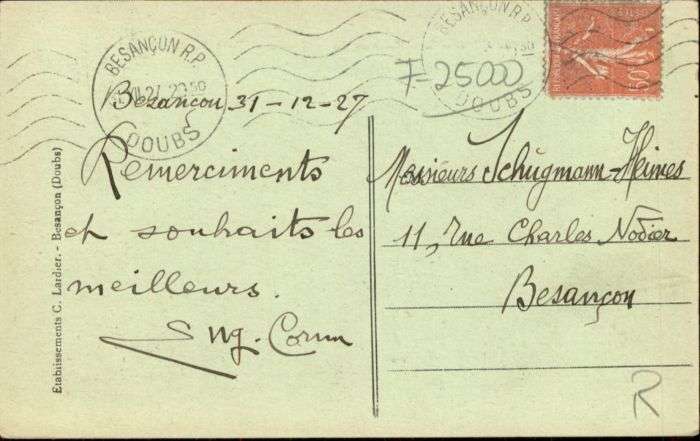 BESANÇON R.P.
DOUBS
BESANÇON R.P.
DOUBS
7-25000
50
Besançon 31-12-27
Remerciments
et souhaits les
meilleurs.
Messieurs Schugmann-Heimes
11, rue Charles Nodier
Besançon
R
Etablissements C. Lardier. - Besançon (Doubs)